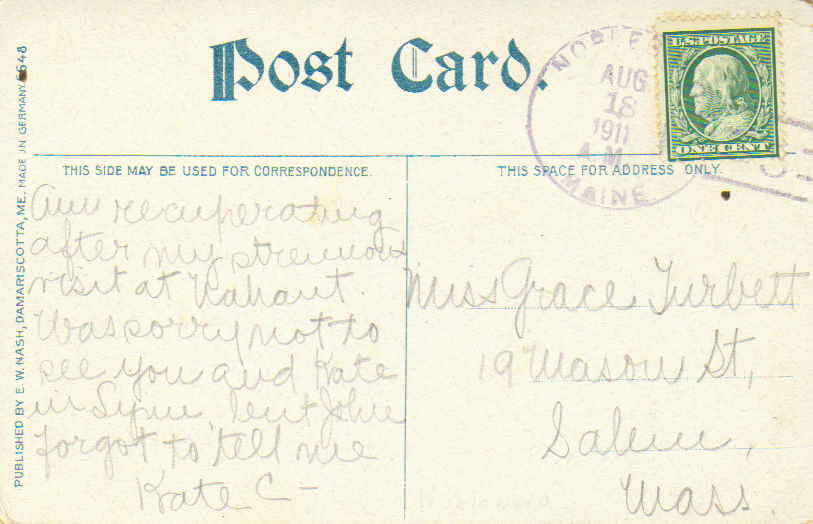 Post Card.
NOBLE
AUG
18
1911
A.M.
MAINE
U.S. POSTAGE
ONE CENT
THIS SIDE MAY BE USED FOR CORRESPONDENCE.
THIS SPACE FOR ADDRESS ONLY.
Am recuperating
after my strenuous
visit at Nahant.
Was sorry not to
see you and Kate
in Lynn, but John
forgot to tell me
Kate C -
Miss Grace Turbett
19 Mason St,
Salem,
Mass.
PUBLISHED BY E. W. NASH, DAMARISCOTTA, ME. MADE IN GERMANY. 6648